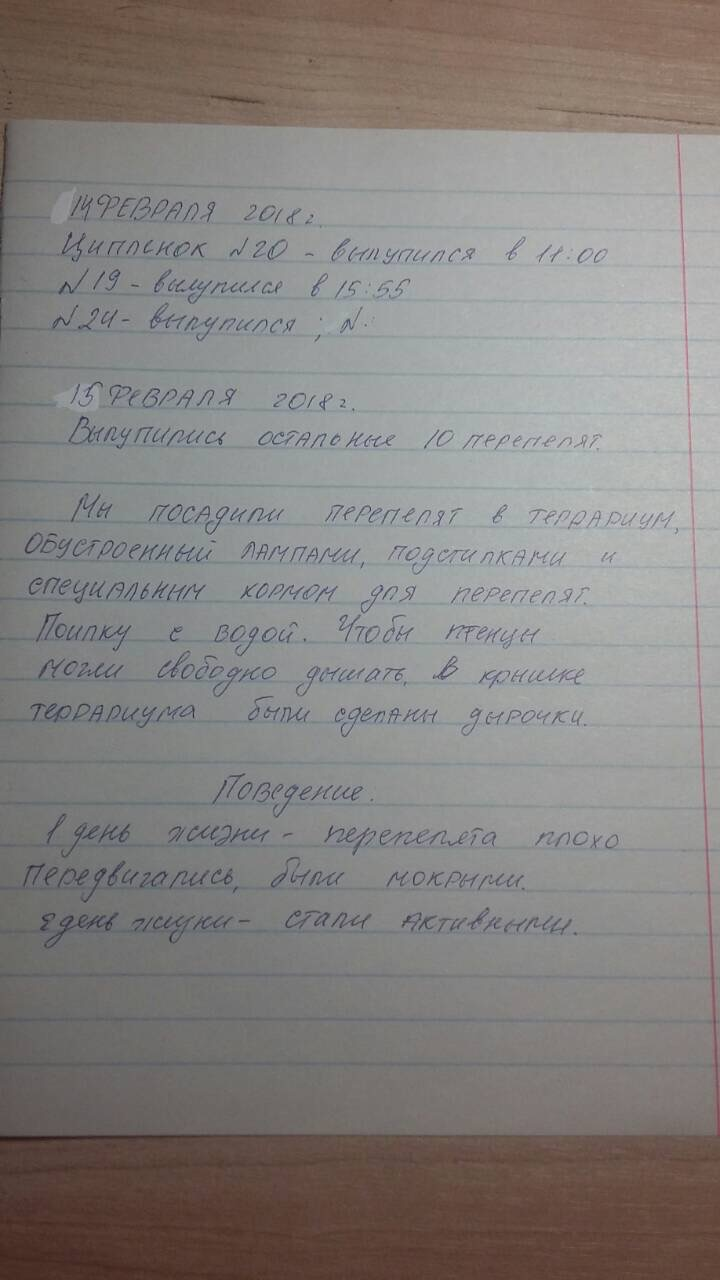 14 ФЕВРАЛЯ 2018 г.
Ципленок №20 - вылупился в 11:00
№19 - вылупился в 15:55
№24 - вылупился ; №.
15 ФЕВРАЛЯ 2018 г.
Вылупились остальные 10 перепелят.
Мы посадили перепелят в террариум,
обустроенный лампами, подстилками и
специальным кормом для перепелят.
Поилку с водой. Чтобы птенцы
могли свободно дышать, в крышке
террариума были сделаны дырочки.
Поведение.
1 день жизни - перепелята плохо
передвигались, были мокрыми.
2 день жизни - стали активными.